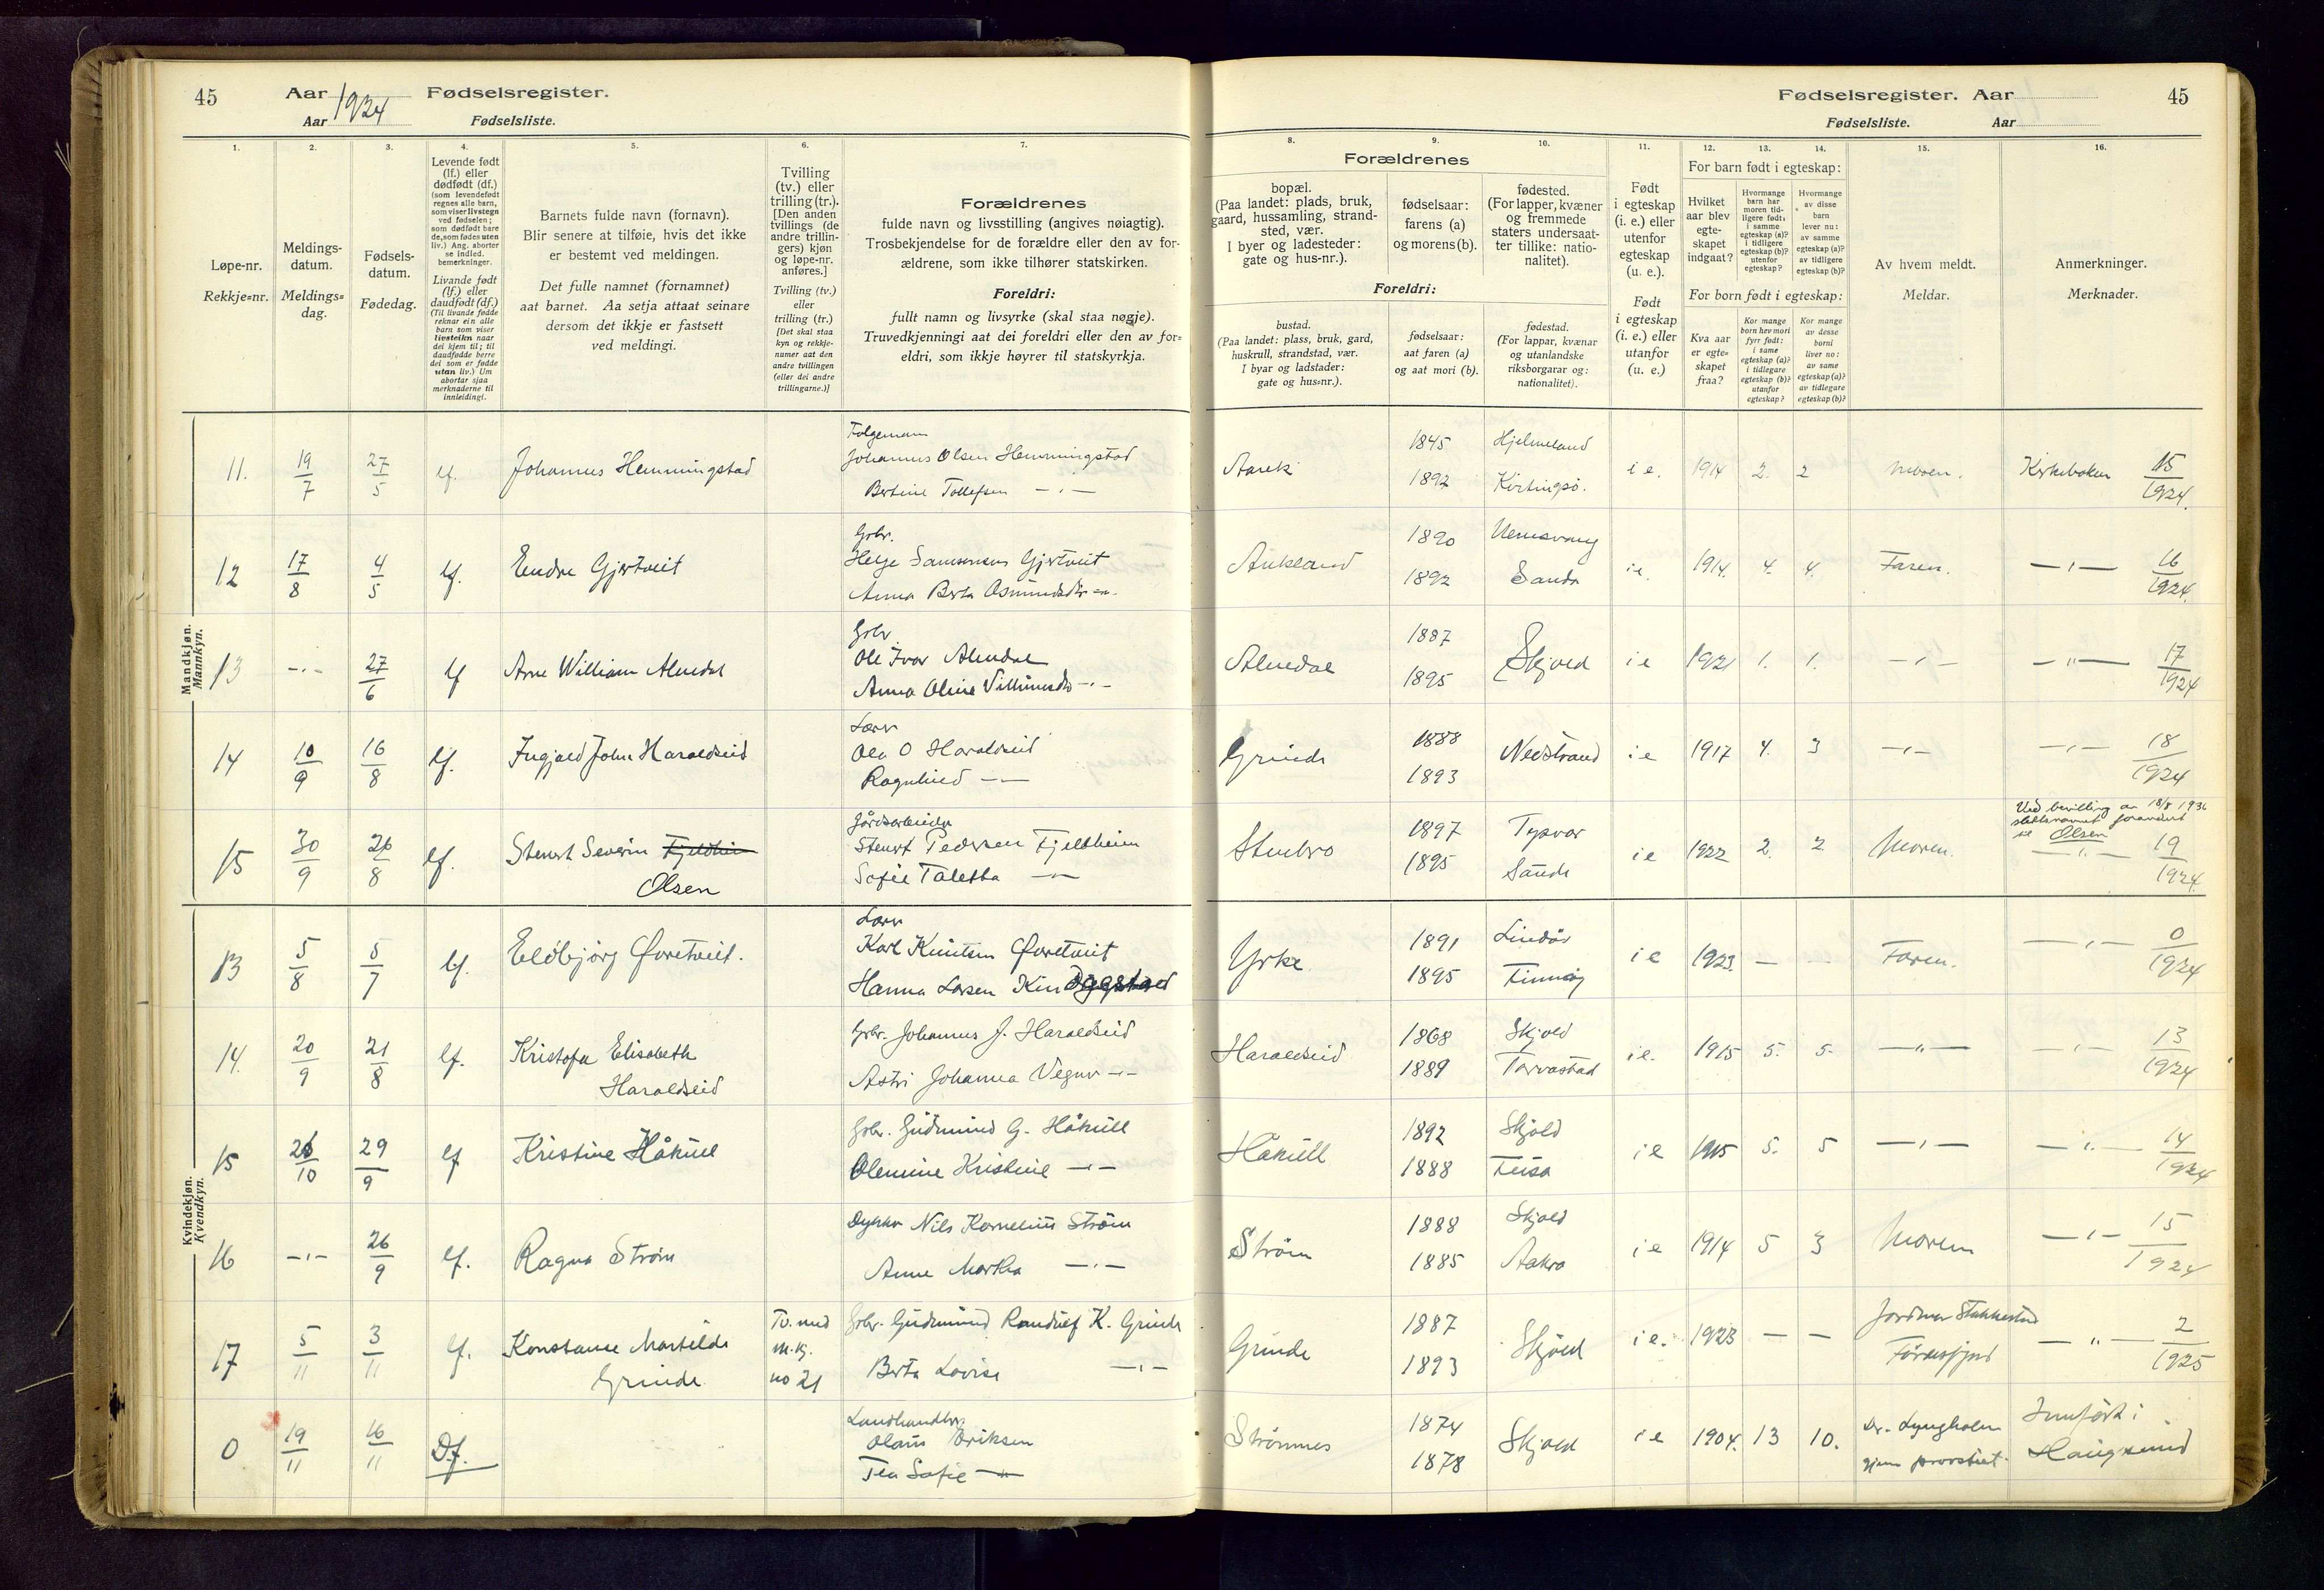 45 Aar 1924 Fødselsregister.
Aar Fødselsliste.
Fødselsregister. Aar 45
Fødselsliste. Aar
1.
Løpe-nr.
Rekkje=nr.
2.
Meldings-
datum.
Meldings=
dag.
3.
Fødsels-
datum.
Fødedag.
4.
Levende født
(lf.) eller
dødfødt (df.)
(som levendefødt
regnes alle barn,
som viser livstegn
ved fødselen;
som dødfødt bare
de, som fødes uten
liv.) Ang. aborter
se indled.
bemerkninger.
Livande født
(lf.) eller
daudfødt (df.)
(Til livande fødde
reknar ein alle
barn som viser
livsteikn naar
dei kjem til; til
daudfødde berre
dei som er fødde
utan liv.) Um
abortar sjaa
merknaderne til
innleidingi.
5.
Barnets fulde navn (fornavn).
Blir senere at tilføie, hvis det ikke
er bestemt ved meldingen.
Det fulle namnet (fornamnet)
aat barnet. Aa setja attaat seinare
dersom det ikkje er fastsett
ved meldingi.
6.
Tvilling
(tv.) eller
trilling (tr.).
[Den anden
tvillings (de
andre trillin-
gers) kjøn
og løpe-nr.
anføres.]
Tvilling (tv.)
eller
trilling (tr.)
[Det skal staa
kyn og rekkje-
numer aat den
andre tvillingen
(eller dei andre
trillingarne.)]
7.
Forældrenes
fulde navn og livsstilling (angives nøiagtig).
Trosbekjendelse for de forældre eller den av for-
ældrene, som ikke tilhører statskirken.
Foreldri:
fullt namn og livsyrke (skal staa nøgje).
Truvedkjenningi aat dei foreldri eller den av for=
eldri, som ikkje høyrer til statskyrkja.
Forældrenes
8.
bopæl.
(Paa landet: plads, bruk,
gaard, hussamling, strand-
sted, vær.
I byer og ladesteder:
gate og hus-nr.).
9.
fødselsaar:
farens (a)
og morens (b).
10.
fødested.
(For lapper, kvæner
og fremmede
staters undersaat-
ter tillike: natio-
nalitet).
Foreldri:
bustad.
(Paa landet: plass, bruk, gard,
huskrull, strandstad, vær.
I byar og ladstader:
gate og hus=nr.).
fødselsaar:
aat faren (a)
og aat mori (b).
fødestad.
(For lappar, kvænar
og utanlandske
riksborgarar og:
nationalitet).
11.
Født
i egteskap
(i. e.) eller
utenfor
egteskap
(u. e.).
Født
i egteskap
(i. e.) eller
utanfor
(u. e.)
For barn født i egteskap:
12.
Hvilket
aar blev
egte-
skapet
indgaat?
13.
Hvormange
barn har
moren tid-
ligere født:
i samme
egteskap (a)?
i tidligere
egteskap (b)?
utenfor
egteskap?
14.
Hvormange
av disse
barn
lever nu:
av samme
egteskap (a)?
av tidligere
egteskap (b)?
For born født i egteskap:
Kva aar
er egte=
skapet
fraa?
Kor mange
born hev mori
fyrr født:
i same
egteskap (a)?
i tidlegare
egteskap (b)?
utanfor
egteskap?
Kor mange
av desse
borni
liver no:
av same
egteskap (a)?
av tidlegare
egteskap (b)?
15.
Av hvem meldt.
Meldar.
16.
Anmerkninger.
Merknader.
Mandkjøn.
Mannkyn.
11. 19/7 27/5 lf. Johannes Hemmingstad
Følgemann
Johannes Olsen Hemmingstad
Bertine Tollefsen —"—
Aarek 1845 Hjelmeland
1892
i e. 1914 2. 2 Moren. Kirkeboken 15/1924.
12 17/8 4/5 lf. Endre Gjertveit
Gbr.
Helge Samsonsen Gjertveit
Anna Berta Osmundsdtr —"—
Aukland 1890
1892 Sauda
i e. 1914. 4. 4. Faren. —"— 16/1924.
13 —"— 27/6 lf Arne William Alvedal
Gbr
Ole Ivar Alvedal
Anna Oline Villumsdtr —"—
Alvedal 1887 Skjold
1895
i e 1921 1. 1. —"— —"— 17/1924
14 10/9 16/8 lf. Ingjald John Haraldseid
Lærer
Ola O Haraldseid
Ragnhild —"—
Grinde 1888 Nedstrand
1893
i e 1917 4. 3 —"— —"— 18/1924
15 30/9 26/8 lf. Stenert Severin Fjeldheim
Olsen
Gårdsarbeider
Stenert Pedersen Fjeldheim
Sofie Taletta —"—
Stenbro 1897 Tysvær
1895 Sauda
i e 1922 2. 2 Moren.
Ved bevilling av 18/8 1936
slektsnavnet forandret
til Olsen
—"— 19/1924.
Kvindekjøn.
Kvendkyn.
13 5/8 5/7 lf. Eldbjørg Øvretveit.
Lærer
Karl Knutsen Øvretveit
Hanna Larsen
Yrke 1891 Lindås
1895 Finnøy
i e 1923. — — Faren. —"— 0/1924
14. 20/9 21/8 lf. Kristofa Elisabeth
Haraldseid
Gbr. Johannes J. Haraldseid
Astri Johanna Vegner —"—
Haraldseid 1868 Skjold
1889 Torvastad
i e. 1915 5. 5. —"— —"— 13/1924
15 26/10 29/9 lf Kristine Håkull
Gbr. Gudmund G. Håkull
Olemine Kristine —"—
Håkull 1892 Skjold
1888
i e 1915 5. 5 —"— —"— 14/1924
16 —"— 26/9 lf. Ragna Strøm
Nils Kornelius Strøm
Anne Martha —"—
Strøm 1888 Skjold
1885 Aakra
i e 1914 5 3 Moren —"— 15/1924
17 5/11 3/11 lf. Konstance Mathilde
Grinde
Tv. med
m.kj.
no 21
Gbr. Gudmund Randulf K. Grinde
Berta Lovise —"—
Grinde 1887 Skjold
1893
i e. 1923 — — Jordmor Stakkestad
Førdesfjord
—"— 2/1925
0 19/11 16/11 Df.
Landhandler
Olaus Eriksen
Tea Sofie —"—
Strømnes 1874 Skjold
1878
i e 1904. 13 10. Dr. Lyngholm
gjenn provstiet.
Innført i
Haugesund